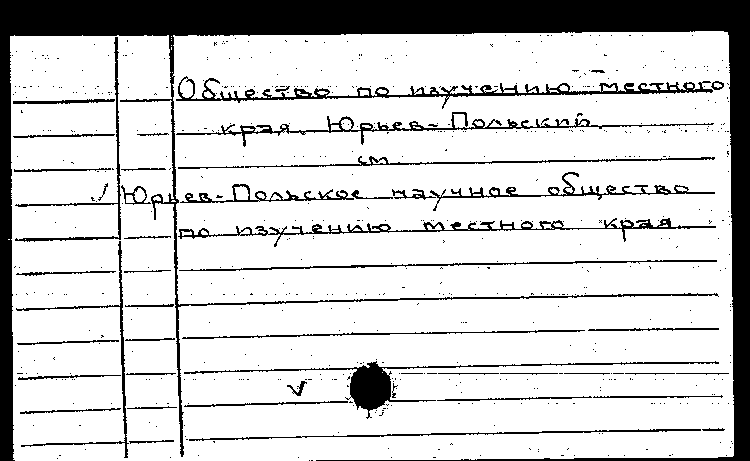 Общество по изучению местного
края. Юрьев-Польский.
см
✓ Юрьев-Польское научное общество
по изучению местного края.
v